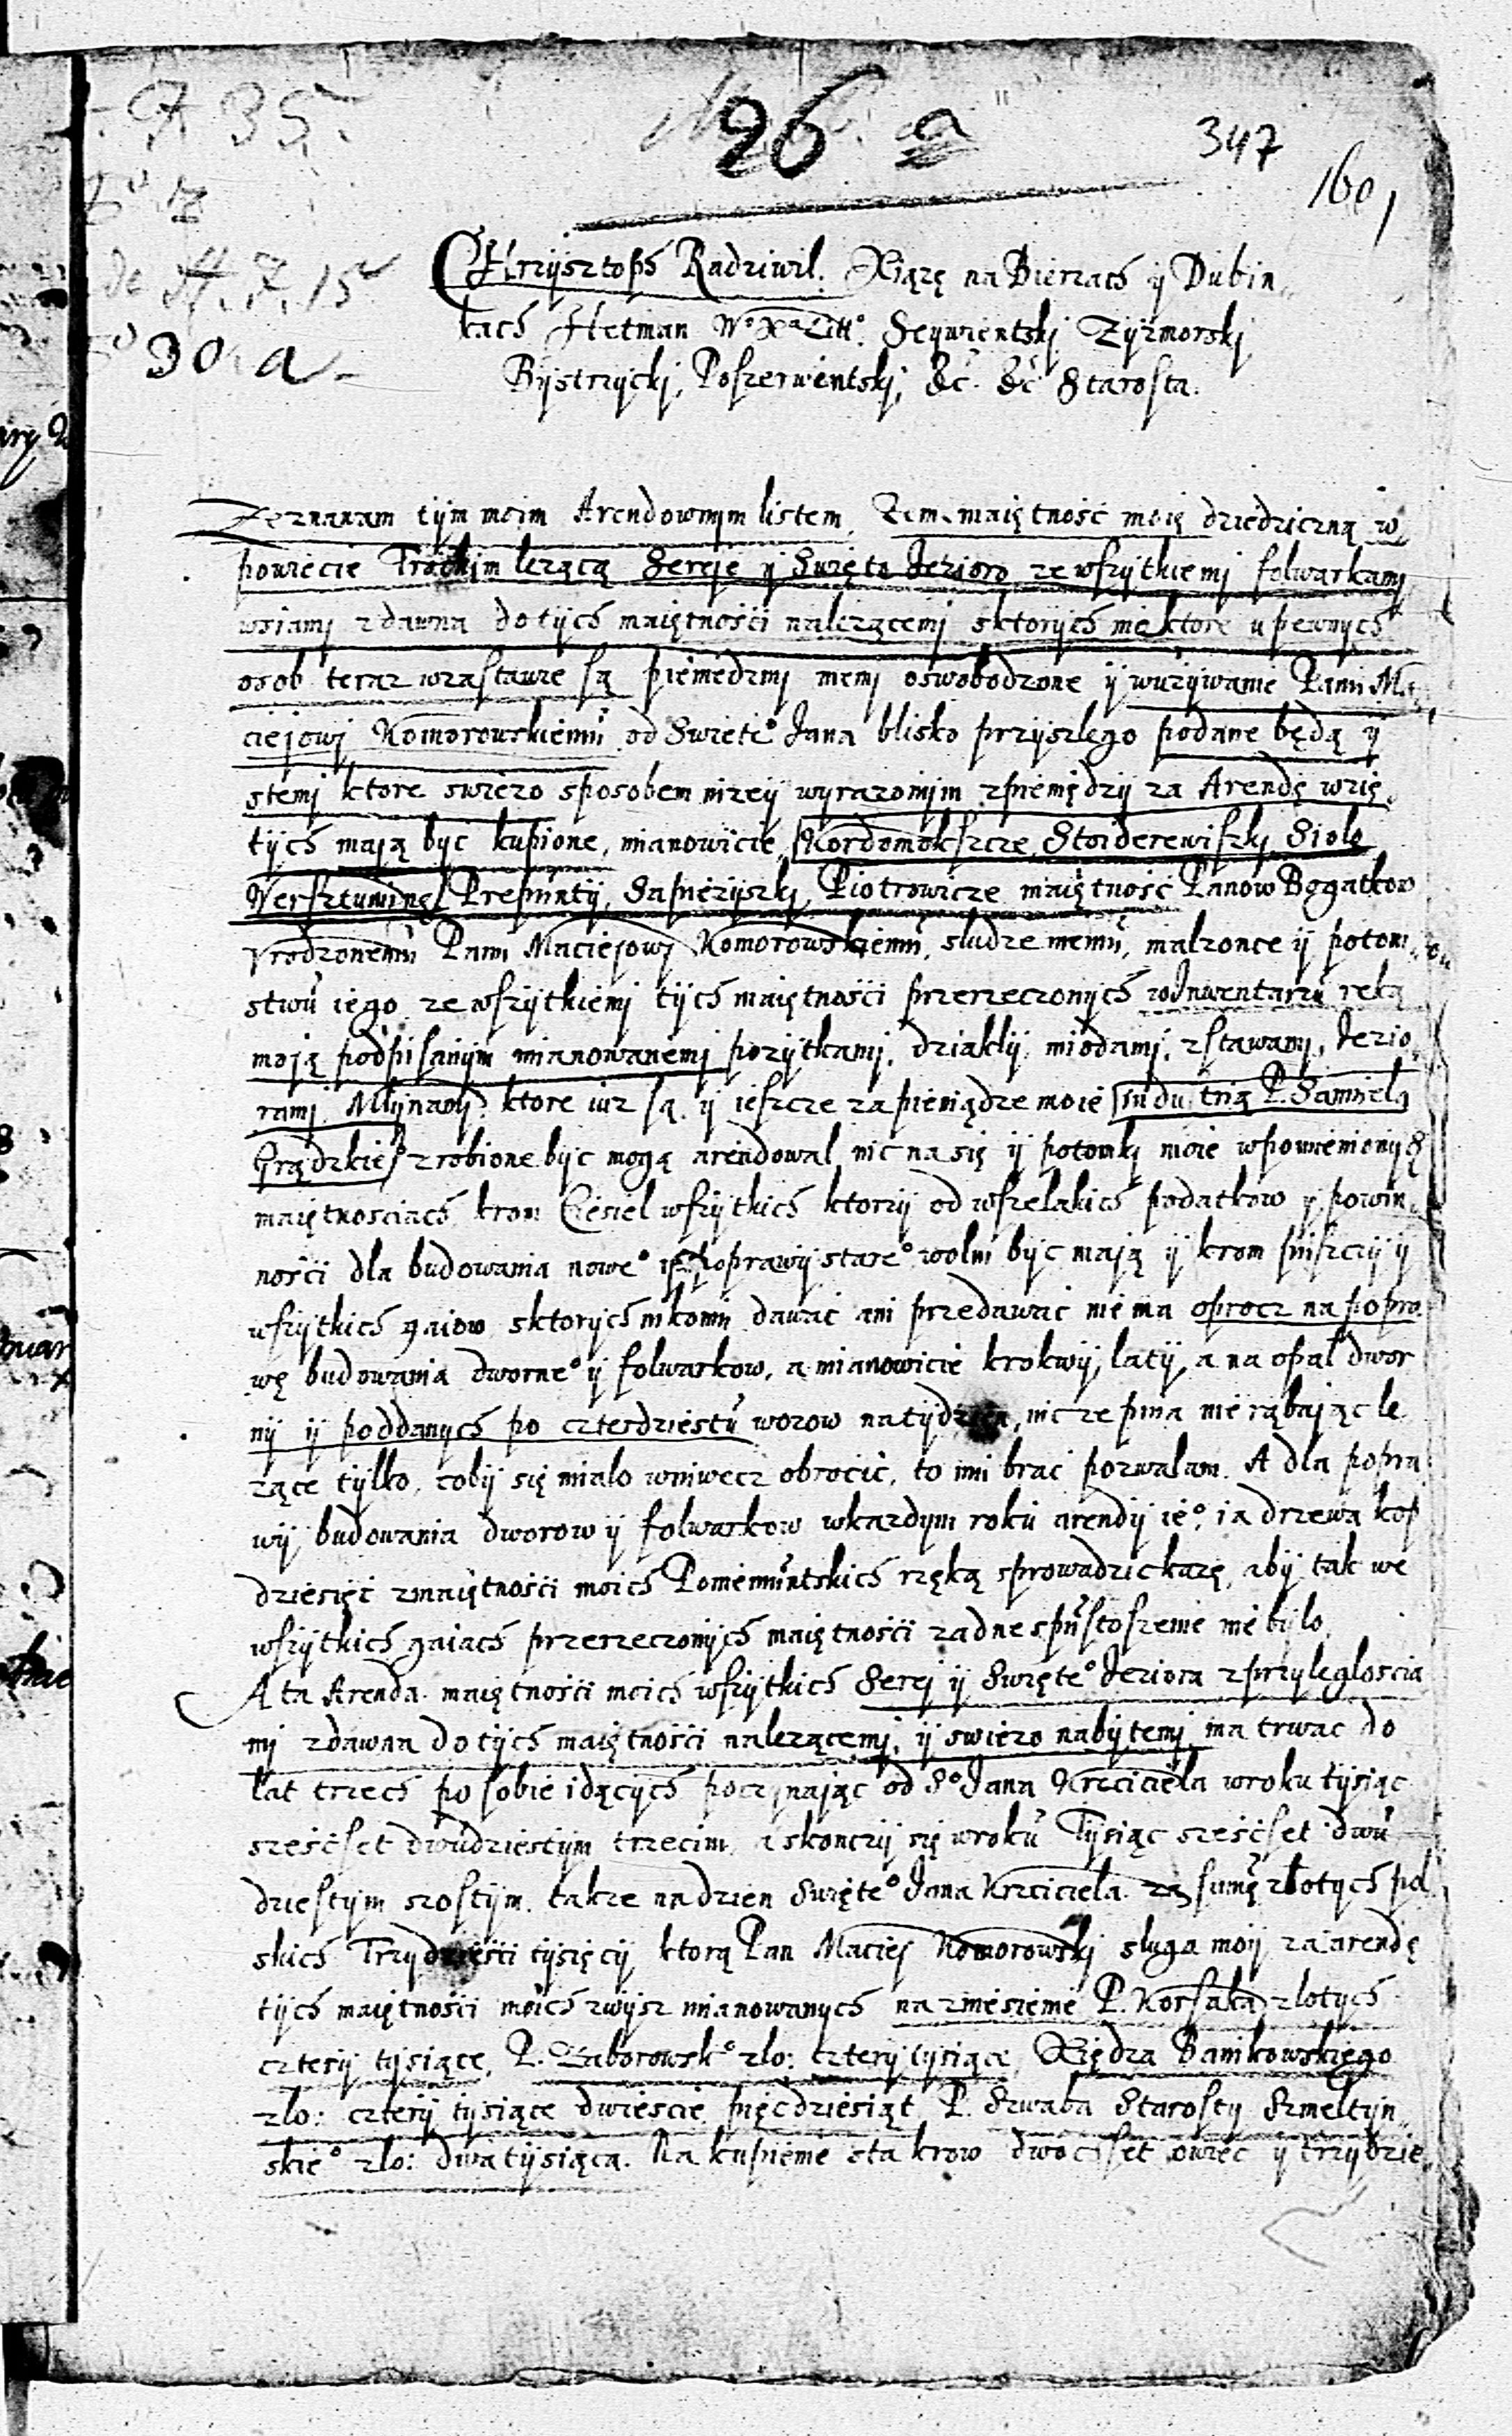 26 a
347
160
A 35.
30 a
Chrzysztoph Radziwil. Xiążę na Bierzach ÿ Dubin
kach Hetman Wº Xª Littº. Seywientskj Zyżmorskj
Bÿstrzÿckj, Poszerwientskj, &c. &c Starosta.
Zeznawam tÿm moim Arendownÿm listem, Żem maiętność moię dziedziczną w
powiecie Trockim leżącą Sereje ÿ Swięto Jezioro ze wszÿtkiemj folwarkamj
wsiamj zdawna do tÿch maiętnosći należącemj s ktorÿch niektore u pewnÿch
osob teraz w zastawie są pieniedzmj memj oswobodzone ÿ w użÿwanie Panu Ma
ciejowj Komorowskiemu od Swieteº Jana blisko przÿszlego podane będą ÿ
s temj ktore swieżo sposobem niżeÿ wÿrażonÿm z pieniędzÿ za Arendę wzię
tÿch mają bÿc kupione, mianowicie, Kordomokszcze, Stoiderewiszkj Siolo
Wersztumingj Prepuntÿ, Sapieżÿszkj, Piotrowicze maiętność Panow Bogatkow
Vrodzonemu Panu Maciejowj Komorowskiemu, sludze memu, malżonce ÿ potom
stwu iego ze wszÿtkiemj tÿch maiętnosći przerzeczonÿch w Jnwentarzu ręką
moją podpisanÿm mianowanemj pożÿtkamj, dziaklÿ, miodamj, z stawamj, Jezio
ramj, Mlÿnamj, ktore iuż są ÿ ieszcze za pieniądze moie industrią P. Samuela
Grądzkieº zrobione bÿc mogą arendowal nic na się ÿ potomkj moie w pomienionÿch
maiętnosciach krom Ciesiel wszÿtkich ktorzÿ od wszelakich podatkow ÿ powin
nosći dla budowania noweº ÿ poprawÿ stareº wolni bÿc mają ÿ krom puszczÿ ÿ
wszÿtkich gaiow s ktorÿch nikomu dawać ani przedawać nie ma oprocz na popra
wę budowania dworneº ÿ folwarkow, a mianowicie krokwÿ, latÿ, a na opal dwor
nÿ ÿ poddanÿch po czterdziestu wozow na tÿdzien, nic ze pnia nie rąbając le
żące tÿlko, cobÿ się mialo wniwecz obrocić, to im brać pozwalam. A dla popra
wÿ budowania dworow ÿ folwarkow w każdÿm roku arendÿ ieº, ia drzewa kop
dziesięć z maiętnosći moich Poniemuntskich rzęką sprowadzic każę, abÿ tak we
wszÿtkich gaiach przerzeczonÿch maiętnosći żadne spustoszenie nie bÿlo.
A ta Arenda maiętnosći moich wszÿtkich Serej ÿ Swięteº Jeziora z przÿleglościa
mj zdawna do tÿch maiętnosći należącemj, ÿ swieżo nabÿtemj, ma trwac do
lat trzech po sobie idącÿch poczÿnając od Sº Jana Krzciciela w roku tÿsiąc
sześćset dwudziestÿm trzecim, a skonczÿ się w roku Tÿsiąc sześćset dwu
dziestÿm szostÿm, także na dzien Swięteº Jana Krzciciela. za sumę zlotÿch pol
skich Trzÿdziesći tÿsięcÿ ktorą Pan Maciej Komorowskj sluga moÿ za arendę
tÿch maiętnosći moich zwÿsz mianowanÿch na zniesienie P. Korsaka zlotÿch
czterÿ tÿsiące, P. Zaborowskº zlo: czterÿ tÿsiące, Xiędza Danikowskiego
zlo: czterÿ tÿsiące dwiescie pięcdziesiąt P. Szwaba Starostÿ Szmeltÿn
skieº zlo: dwa tÿsiąca. Na kupienie sta krow dwochset owiec ÿ trzÿdzie